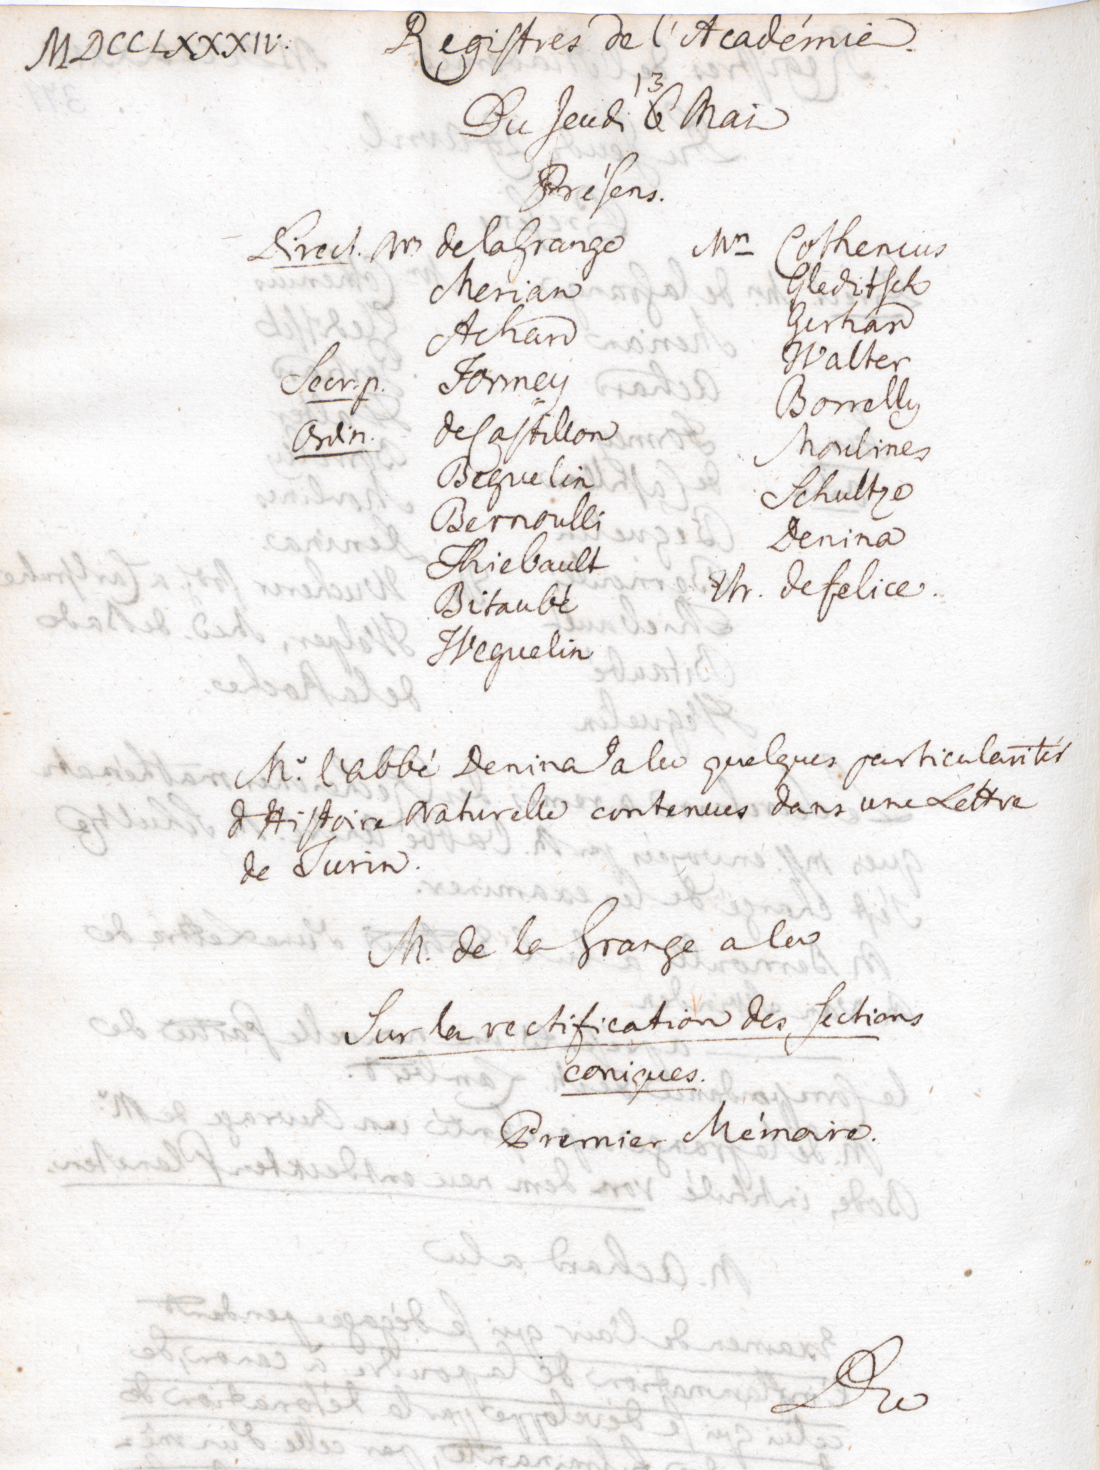 MDCCLXXXIV. Registres de l'Académie.
Du Jeudi 13 Mai
Présens.
Direct. Mrs de la Grange
Merian
Achard
Secr. p. Formey
Ordin. de Castillon
Beguelin
Bernoulli
Thiebault
Bitaubé
Weguelin
Mrs Cothenius
Gleditsch
Gerhard
Walter
Borrelly
Moulines
Schultze
Denina
Etr. de felice.
Mr. l'abbé Denina a lu quelques particularités
d'Histoire Naturelle contenues dans une Lettre
de Turin.
M. de la Grange a lu
Sur la rectification des sections
coniques.
Premier Mémoire.
Du